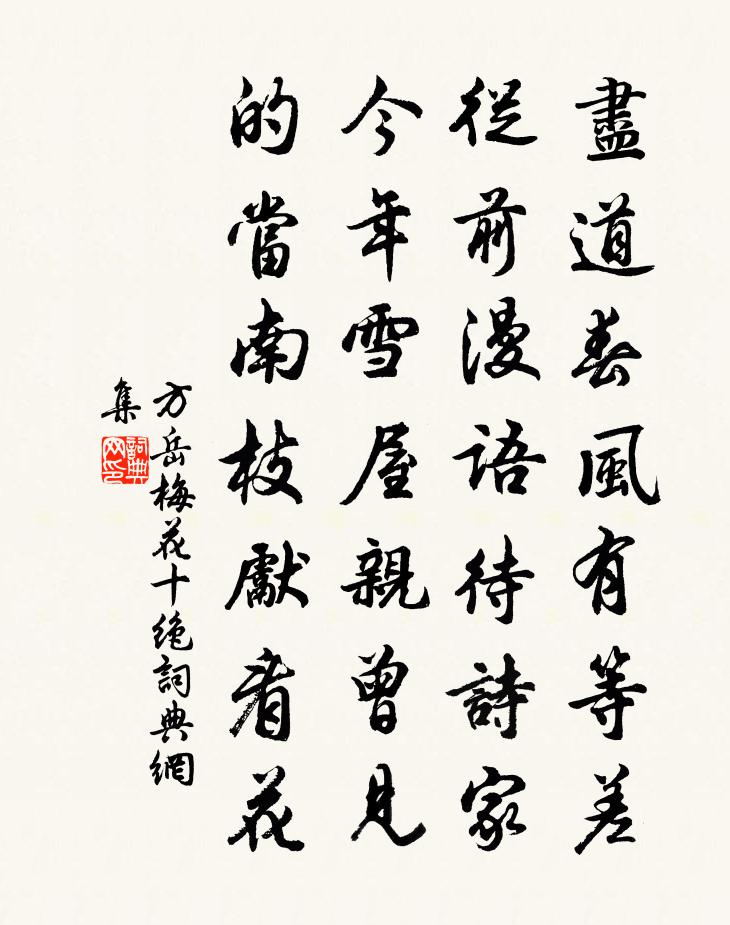 盡道春風有等差
從前漫語待詩家
今年雪屋親曾見
的當南枝獻看花
方岳梅花十絶詞典網
集
詞典
网印